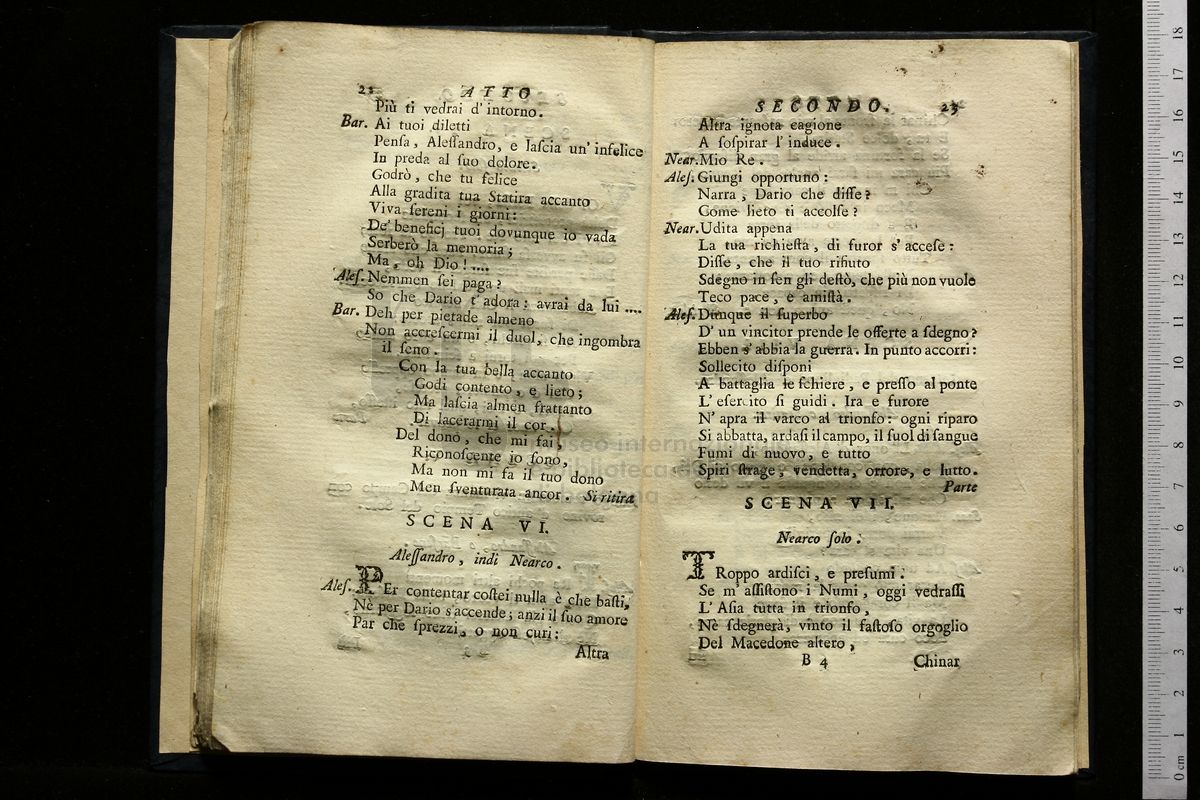 22 ATTO
Più ti vedrai d' intorno.
Bar. Ai tuoi diletti
Penſa, Aleſſandro, e laſcia un' infelice
In preda al ſuo dolore.
Godrò, che tu felice
Alla gradita tua Statira accanto
Viva ſereni i giorni:
De' beneficj tuoi dovunque io vada
Serberò la memoria;
Ma, oh Dio!....
Aleſ. Nemmen ſei paga?
So che Dario t' adora: avrai da lui ....
Bar. Deh per pietade almeno
Non accreſcermi il duol, che ingombra
il ſeno.
Con la tua bella accanto
Godi contento, e lieto;
Ma laſcia almen frattanto
Di lacerarmi il cor.
Del dono, che mi fai,
Riconoſcente io ſono,
Ma non mi fa il tuo dono
Men ſventurata ancor. Si ritira
SCENA VI.
Aleſſandro, indi Nearco.
Aleſ. PEr contentar coſtei nulla è che baſti,
Nè per Dario s'accende; anzi il ſuo amore
Par che ſprezzi, o non curi:
Altra
SECONDO. 23
Altra ignota cagione
A ſoſpirar l' induce.
Near. Mio Re.
Aleſ. Giungi opportuno:
Narra, Dario che diſſe?
Come lieto ti accolſe?
Near. Udita appena
La tua richieſta, di furor s' acceſe:
Diſſe, che il tuo rifiuto
Sdegno in ſen gli deſtò, che più non vuole
Teco pace, e amiſtà.
Aleſ. Dunque il ſuperbo
D' un vincitor prende le offerte a ſdegno?
Ebben s' abbia la guerra. In punto accorri:
Sollecito diſponi
A battaglia le ſchiere, e preſſo al ponte
L' eſercito ſi guidi. Ira e furore
N' apra il varco al trionfo: ogni riparo
Si abbatta, ardaſi il campo, il ſuol di ſangue
Fumi di nuovo, e tutto
Spiri ſtrage, vendetta, orrore, e lutto.
Parte
SCENA VII.
Nearco ſolo.
TRoppo ardiſci, e preſumi.
Se m' aſſiſtono i Numi, oggi vedraſſi
L' Aſia tutta in trionfo,
Nè ſdegnerà, vinto il faſtoſo orgoglio
Del Macedone altero,
B 4 Chinar